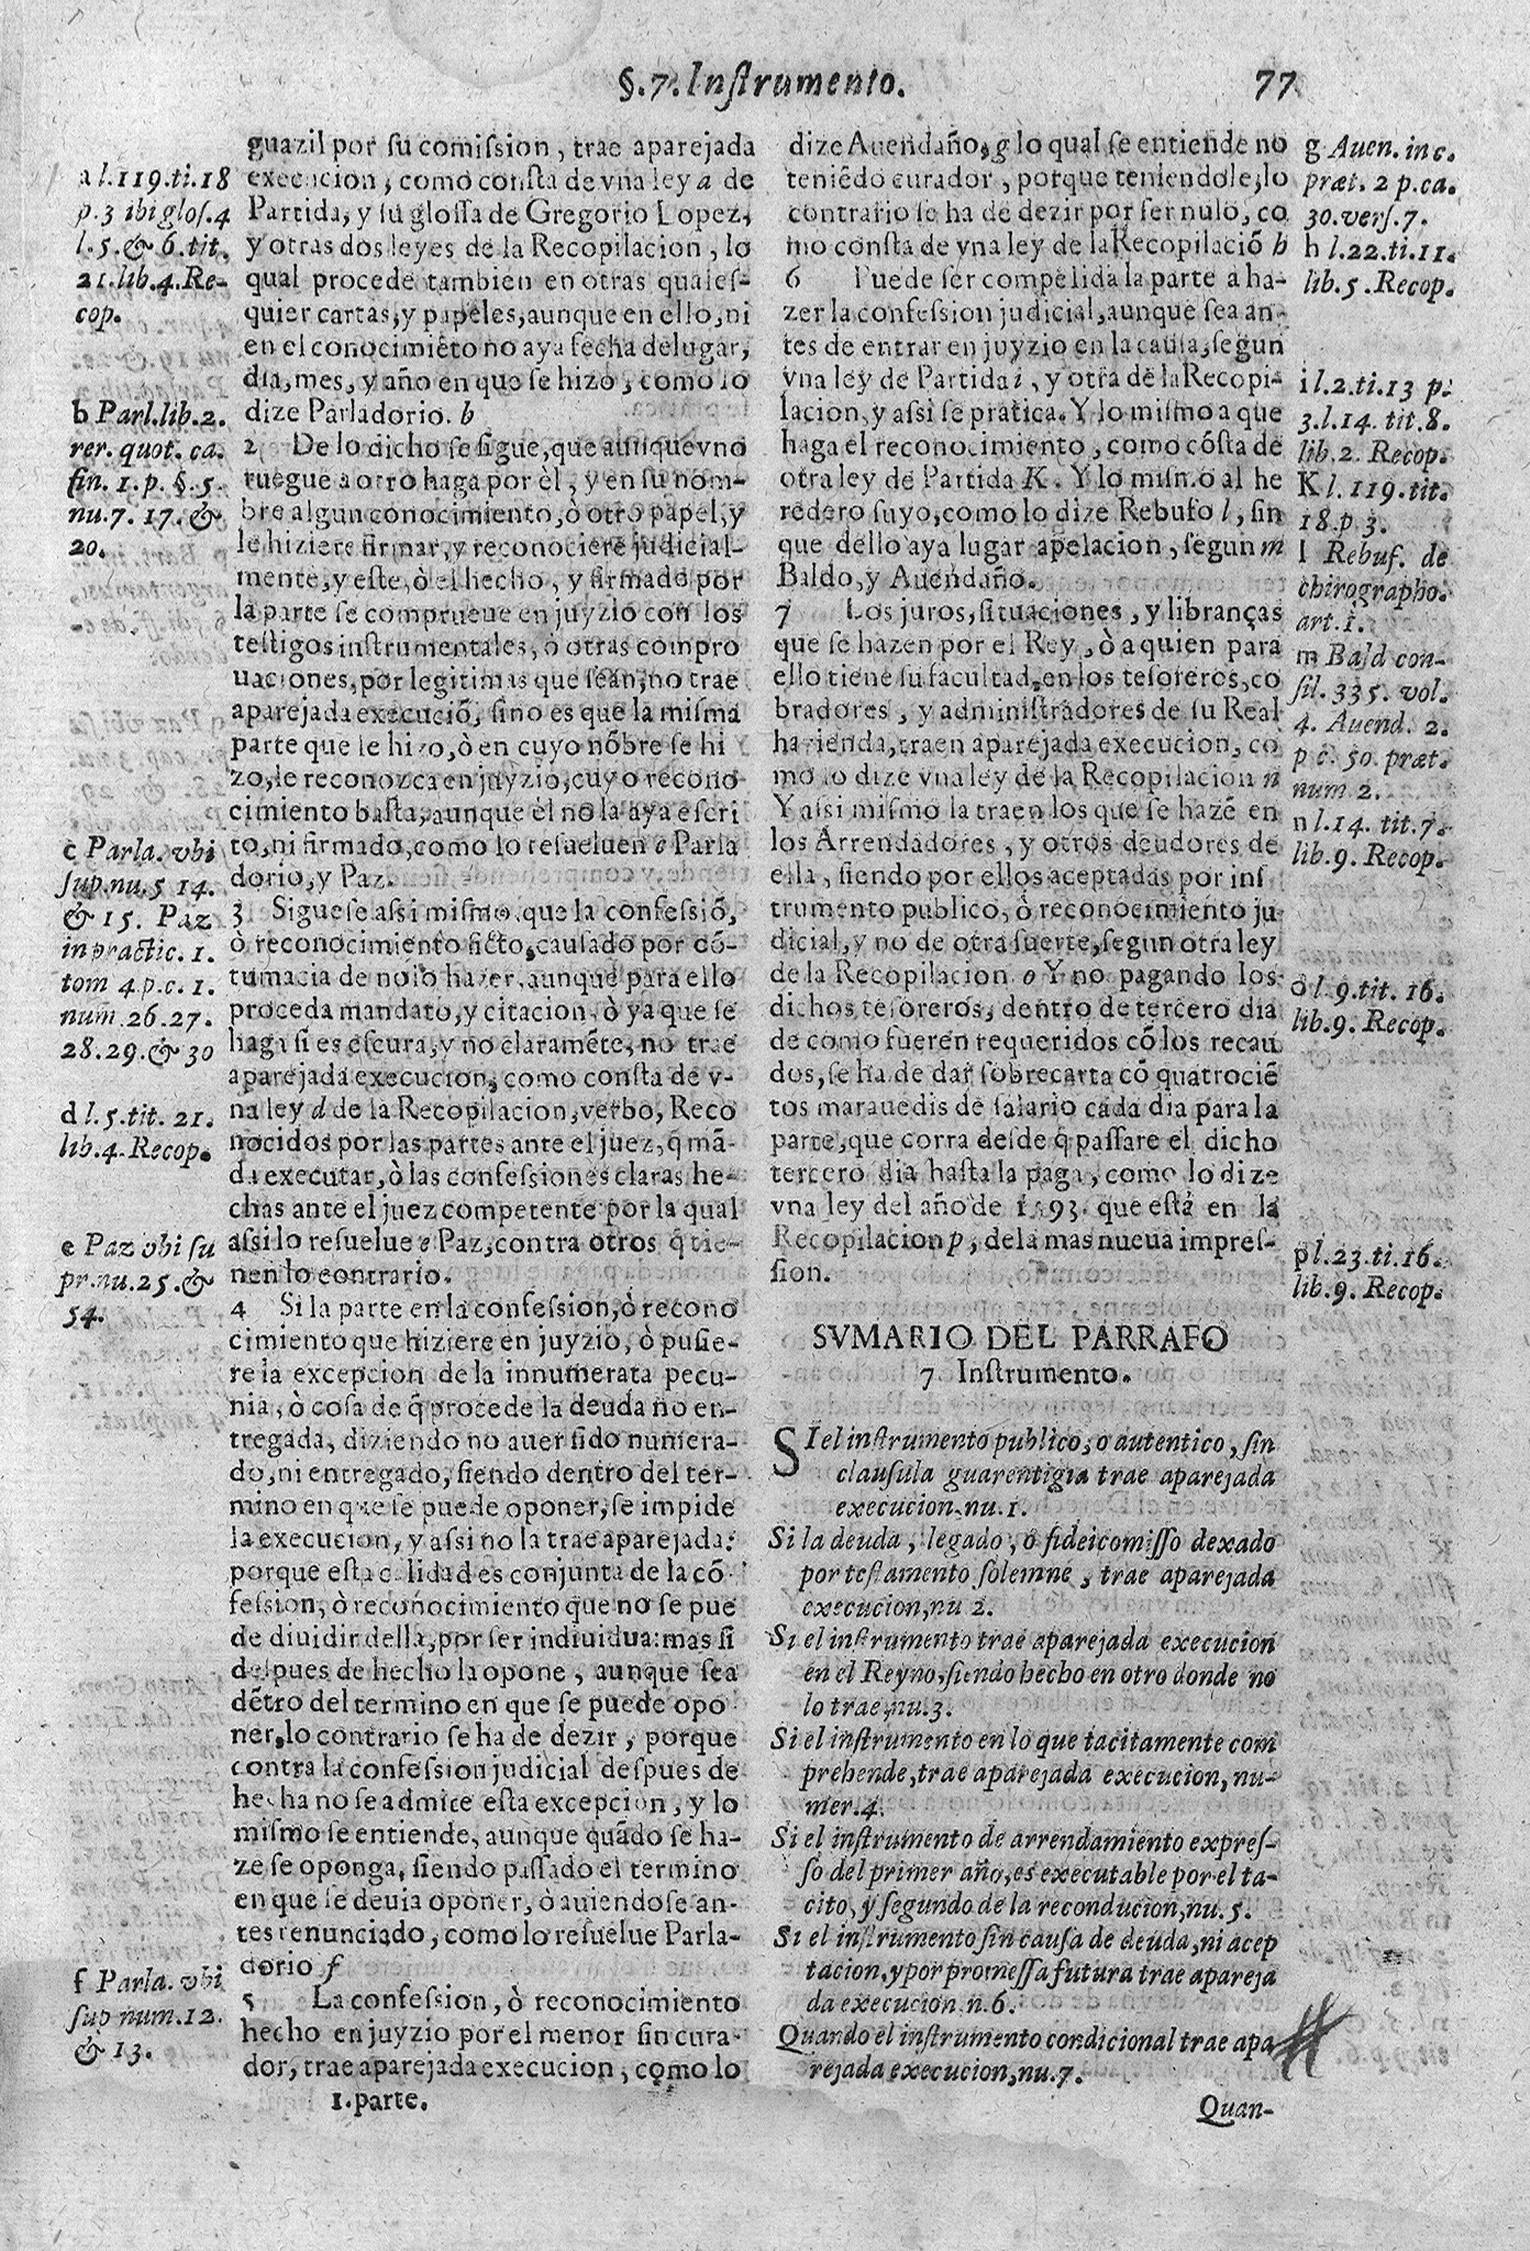 §.7. Instrumento. 77
a l.119.ti.18
p.3 ibi glos.4
l.5.& 6.tit.
21.lib.4.Re-
cop.
b Parl.lib.2.
rer. quot. ca.
fin. 1.p. §.5.
nu.7. 17. &
20.
c Parla. vbi
sup.nu.5 14.
& 15. Paz
in practic. 1.
tom 4.p.c.1.
num.26.27.
28.29.& 30
d l.5.tit. 21.
lib.4.Recop.
e Paz vbi su
pr.nu.25.&
54.
f Parla. vbi
sup num.12.
& 13.
guazil por su comission, trae aparejada
execucion, como consta de vna ley a de
Partida, y su glossa de Gregorio Lopez,
y otras dos leyes de la Recopilacion, lo
qual procede tambien en otras quales-
quier cartas, y papeles, aunque en ello, ni
en el conocimiẽto no aya fecha de lugar,
dia, mes, y año en que se hizo, como lo
dize Parladorio. b
2 De lo dicho se sigue, que aunque vno
ruegue a otro haga por èl, y en su nom-
bre algun conocimiento, ò otro papel, y
le hiziere firmar, y reconociere judicial-
mente, y este, ò el hecho, y firmado por
la parte se comprueue en juyzio con los
testigos instrumentales, ò otras compro
uaciones, por legitimas que sean, no trae
aparejada execuciõ, sino es que la misma
parte que le hizo, ò en cuyo nõbre se hi
zo, le reconozca en juyzio, cuyo recono
cimiento basta, aunque èl no la aya escri
to, ni firmado, como lo resueluen c Parla
dorio, y Paz.
3 Siguese assi mismo, que la confessiõ,
ò reconocimiento ficto, causado por cõ-
tumacia de no lo hazer, aunque para ello
proceda mandato, y citacion, ò ya que se
haga si es escura, y no claramẽte, no trae
aparejada execucion, como consta de v-
na ley d de la Recopilacion, verbo, Reco
nocidos por las partes ante el juez, q̃ mã-
da executar, ò las confessiones claras he-
chas ante el juez competente por la qual
assi lo resuelue e Paz, contra otros q̃ tie-
nen lo contrario.
4 Si la parte en la confession, ò recono
cimiento que hiziere en juyzio, ò pusie-
re la excepcion de la innumerata pecu-
nia, ò cosa de q̃ procede la deuda no en-
tregada, diziendo no auer sido numera-
do, ni entregado, siendo dentro del ter-
mino en que se puede oponer, se impide
la execucion, y assi no la trae aparejada:
porque esta calidad es conjunta de la cõ
fession, ò reconocimiento que no se pue
de diuidir della, por ser indiuidua: mas si
despues de hecho la opone, aunque sea
dẽtro del termino en que se puede opo
ner, lo contrario se ha de dezir, porque
contra la confession judicial despues de
hecha no se admite esta excepcion, y lo
mismo se entiende, aunque quãdo se ha-
ze se oponga, siendo passado el termino
en que se deuia oponer, ò auiendose an-
tes renunciado, como lo resuelue Parla-
dorio f
5 La confession, ò reconocimiento
hecho en juyzio por el menor sin cura-
dor, trae aparejada execucion, como lo
1.parte.
dize Auendaño, g lo qual se entiende no
teniẽdo curador, porque teniendole, lo
contrario se ha de dezir por ser nulo, co
mo consta de vna ley de la Recopilaciõ h
6 Puede ser compelida la parte a ha-
zer la confession judicial, aunque sea an-
tes de entrar en juyzio en la causa, segun
vna ley de Partida i, y otra de la Recopi-
lacion, y assi se pratica. Y lo mismo a que
haga el reconocimiento, como cõsta de
otra ley de Partida K. Y lo mismo al he
redero suyo, como lo dize Rebufo l, sin
que dello aya lugar apelacion, segun m
Baldo, y Auendaño.
7 Los juros, situaciones, y libranças
que se hazen por el Rey, ò a quien para
ello tiene su facultad, en los tesoreros, co
bradores, y administradores de su Real
hazienda, traen aparejada execucion, co
mo lo dize vna ley de la Recopilacion n
Y assi mismo la traen los que se hazẽ en
los Arrendadores, y otros deudores de
ella, siendo por ellos aceptadas por ins
trumento publico, ò reconocimiento ju
dicial, y no de otra suerte, segun otra ley
de la Recopilacion o Y no pagando los
dichos tesoreros, dentro de tercero dia
de como fueren requeridos cõ los recau
dos, se ha de dar sobrecarta cõ quatrociẽ
tos marauedis de salario cada dia para la
parte, que corra desde q̃ passare el dicho
tercero dia hasta la paga, como lo dize
vna ley del año de 1593. que está en la
Recopilacion p, de la mas nueua impres-
sion.
SVMARIO DEL PARRAFO
7 Instrumento.
SI el instrumento publico, o autentico, sin
clausula guarentigia trae aparejada
execucion, nu.1.
Si la deuda, legado, o fideicomisso dexado
por testamento solemne, trae aparejada
execucion, nu 2.
Si el instrumento trae aparejada execucion
en el Reyno, siendo hecho en otro donde no
lo trae, nu.3.
Si el instrumento en lo que tacitamente com
prehende, trae aparejada execucion, nu-
mer.4.
Si el instrumento de arrendamiento expres-
so del primer año, es executable por el ta-
cito, y segundo de la reconducion, nu.5.
Si el instrumento sin causa de deuda, ni acep
tacion, y por promessa futura trae apareja
da execucion. n.6.
Quando el instrumento condicional trae apa
rejada execucion, nu.7.
Quan-
g Auen. in c.
præt. 2 p.ca.
30.vers.7.
h l.22.ti.11.
lib.5.Recop.
i l.2.ti.13 p.
3.l.14. tit.8.
lib.2. Recop.
K l. 119.tit.
18.p 3.
l Rebuf. de
chirographo.
art.1.
m Bald con-
sil. 335. vol.
4. Auend. 2.
p c. 50. præt.
num 2.
n l.14. tit.7.
lib.9. Recop.
o l.9.tit. 16.
lib.9. Recop.
p l.23.ti.16.
lib.9. Recop.